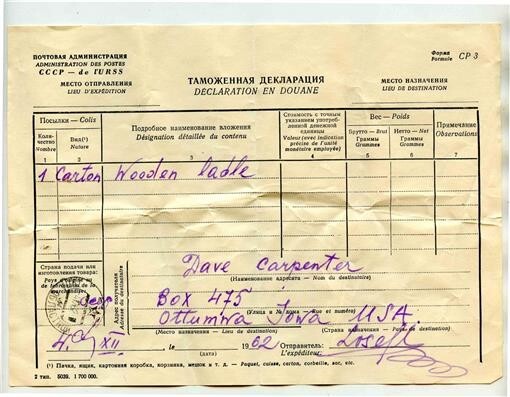 ПОЧТОВАЯ АДМИНИСТРАЦИЯ
ADMINISTRATION DES POSTES
СССР — de l'URSS
МЕСТО ОТПРАВЛЕНИЯ
LIEU D'EXPÉDITION
Форма
Formule CP 3
ТАМОЖЕННАЯ ДЕКЛАРАЦИЯ
DÉCLARATION EN DOUANE
МЕСТО НАЗНАЧЕНИЯ
LIEU DE DESTINATION
Посылки — Colis
Коли-
чество
Nombre
Вид(¹)
Nature
Подробное наименование вложения
Désignation détaillée du contenu
Стоимость с точным
указанием употреб-
ленной денежной
единицы
Valeur (avec indication
précise de l'unité
monétaire employée)
Вес — Poids
Брутто — Brut
Граммы
Grammes
Нетто — Net
Граммы
Grammes
Примечание
Observations
1 2 3 4 5 6 7
1 Carton Wooden ladle
Страна подачи или
изготовления товара:
Адрес получателя
Adresse du destinataire
Dave Carpenter
(Наименование адресата — Nom du destinataire)
Box 475
(Улица и № дома — Rue et numéro)
Ottumwa Iowa USA.
(Место назначения — Lieu de destination)
(Страна назначения — Pays de destination)
XII 1962
(дата)
Отправитель:
L'expéditeur:
(¹) Пачка, ящик, картонная коробка, корзинка, мешок и т. д. — Paquet, caisse, carton, corbeille, sac, etc.
2 тип. 5039. 1 700 000.